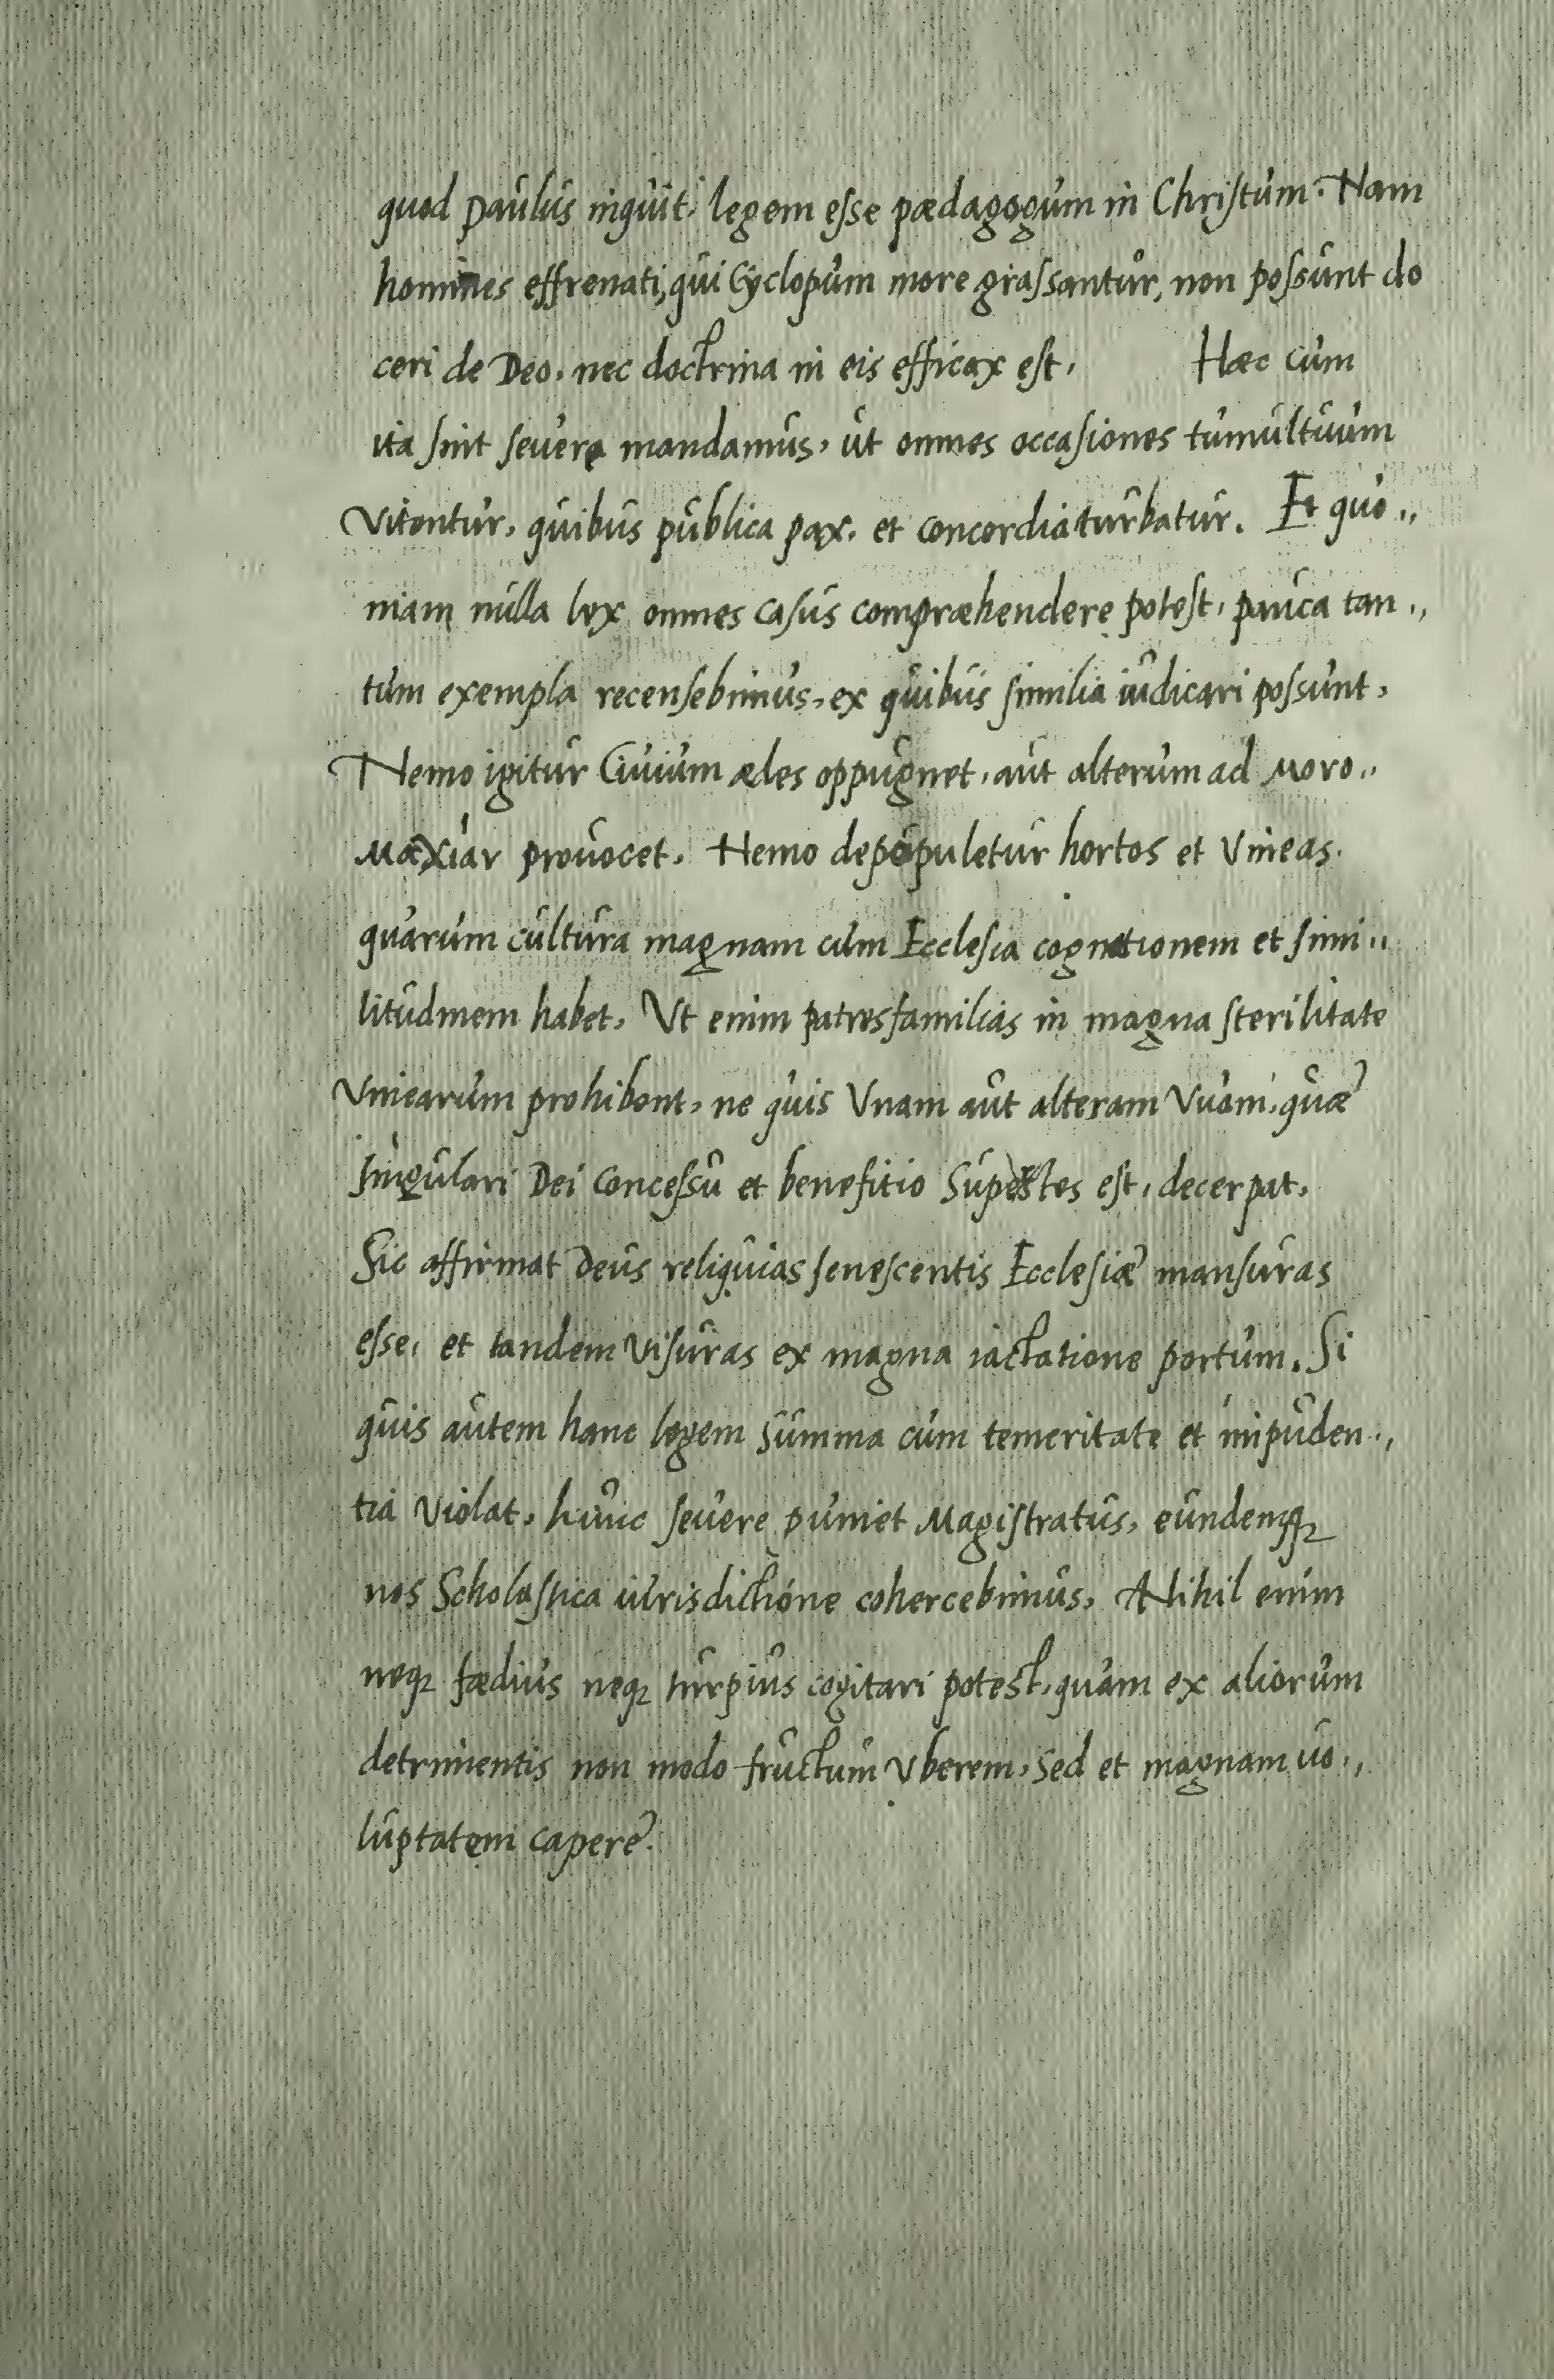 quod Paulus inquit, legem eſse pædagogum in Chriſtum. Nam
homines effrenati, qui Cyclopum more graſsantur, non poſsunt do
ceri de Deo, nec doctrina in eis efficax eſt, Hæc cum
ita ſint ſeuere mandamus, ut omnes occaſiones tumultuum
Vitentur, quibus publica pax, et concordia turbatur. Et quo,,
niam nulla lex omnes caſus compræhendere poteſt, pauca tan,,
tum exempla recenſebimus, ex quibus ſimilia iudicari poſsunt,
Nemo igitur Ciuium ædes oppugnet, aut alterum ad μονο,,
μαχιαν prouocet, Nemo depopuletur hortos et Vineas.
quarum cultura magnam cum Eccleſia cognationem et ſimi,,
litudinem habet, Vt enim patresfamilias in magna ſterilitate
Vinearum prohibent, ne quis Vnam aut alteram Vuam, quæ
ſingulari Dei conceſsu et benefitio Superſtes eſt, decerpat,
Sic affirmat Deus reliquias ſeneſcentis Eccleſiæ manſuras
eſse, et tandem Viſuras ex magna iactatione portum. Si
quis autem hanc legem summa cum temeritate et impuden,,
tia Violat, hunc ſeuere puniet Magiſtratus, eundemqꝫ
nos Scholaſtica iurisdictione cohercebimus, Nihil enim
neqꝫ fædius neqꝫ turpius cogitari potest, quam ex aliorum
detrimentis non modo fructum Vberem, sed et magnam uo,,
luptatem capere.